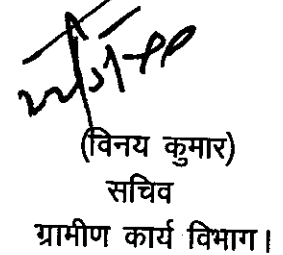 (विनय कुमार)
सचिव
ग्रामीण कार्य विभाग।